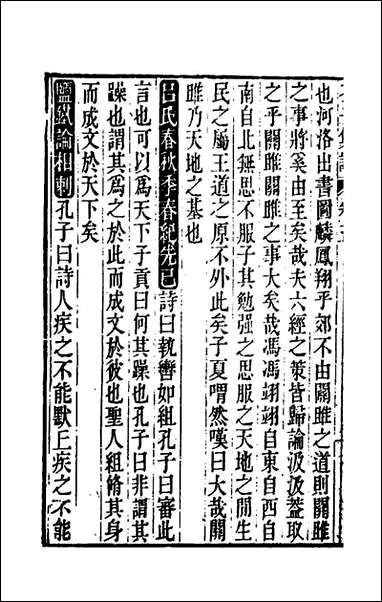 也河洛出書圖麟鳳翔乎郊不由關雎之道則關雎
之事將奚由至矣哉夫六經之策皆歸論汲汲蓋取
之乎關雎關雎之事大矣哉馮馮翊翊自東自西自
南自北無思不服子其勉强之思服之天地之閒生
民之屬王道之原不外此矣子夏喟然嘆曰大哉關
雎乃天地之基也
呂氏春秋季春紀先己詩曰執轡如組孔子曰審此
言也可以爲天下子貢曰何其躁也孔子曰非謂其
躁也謂其爲之於此而成文於彼也聖人組脩其身
而成文於天下矣
鹽鐵論相刺孔子曰詩人疾之不能默丘疾之不能